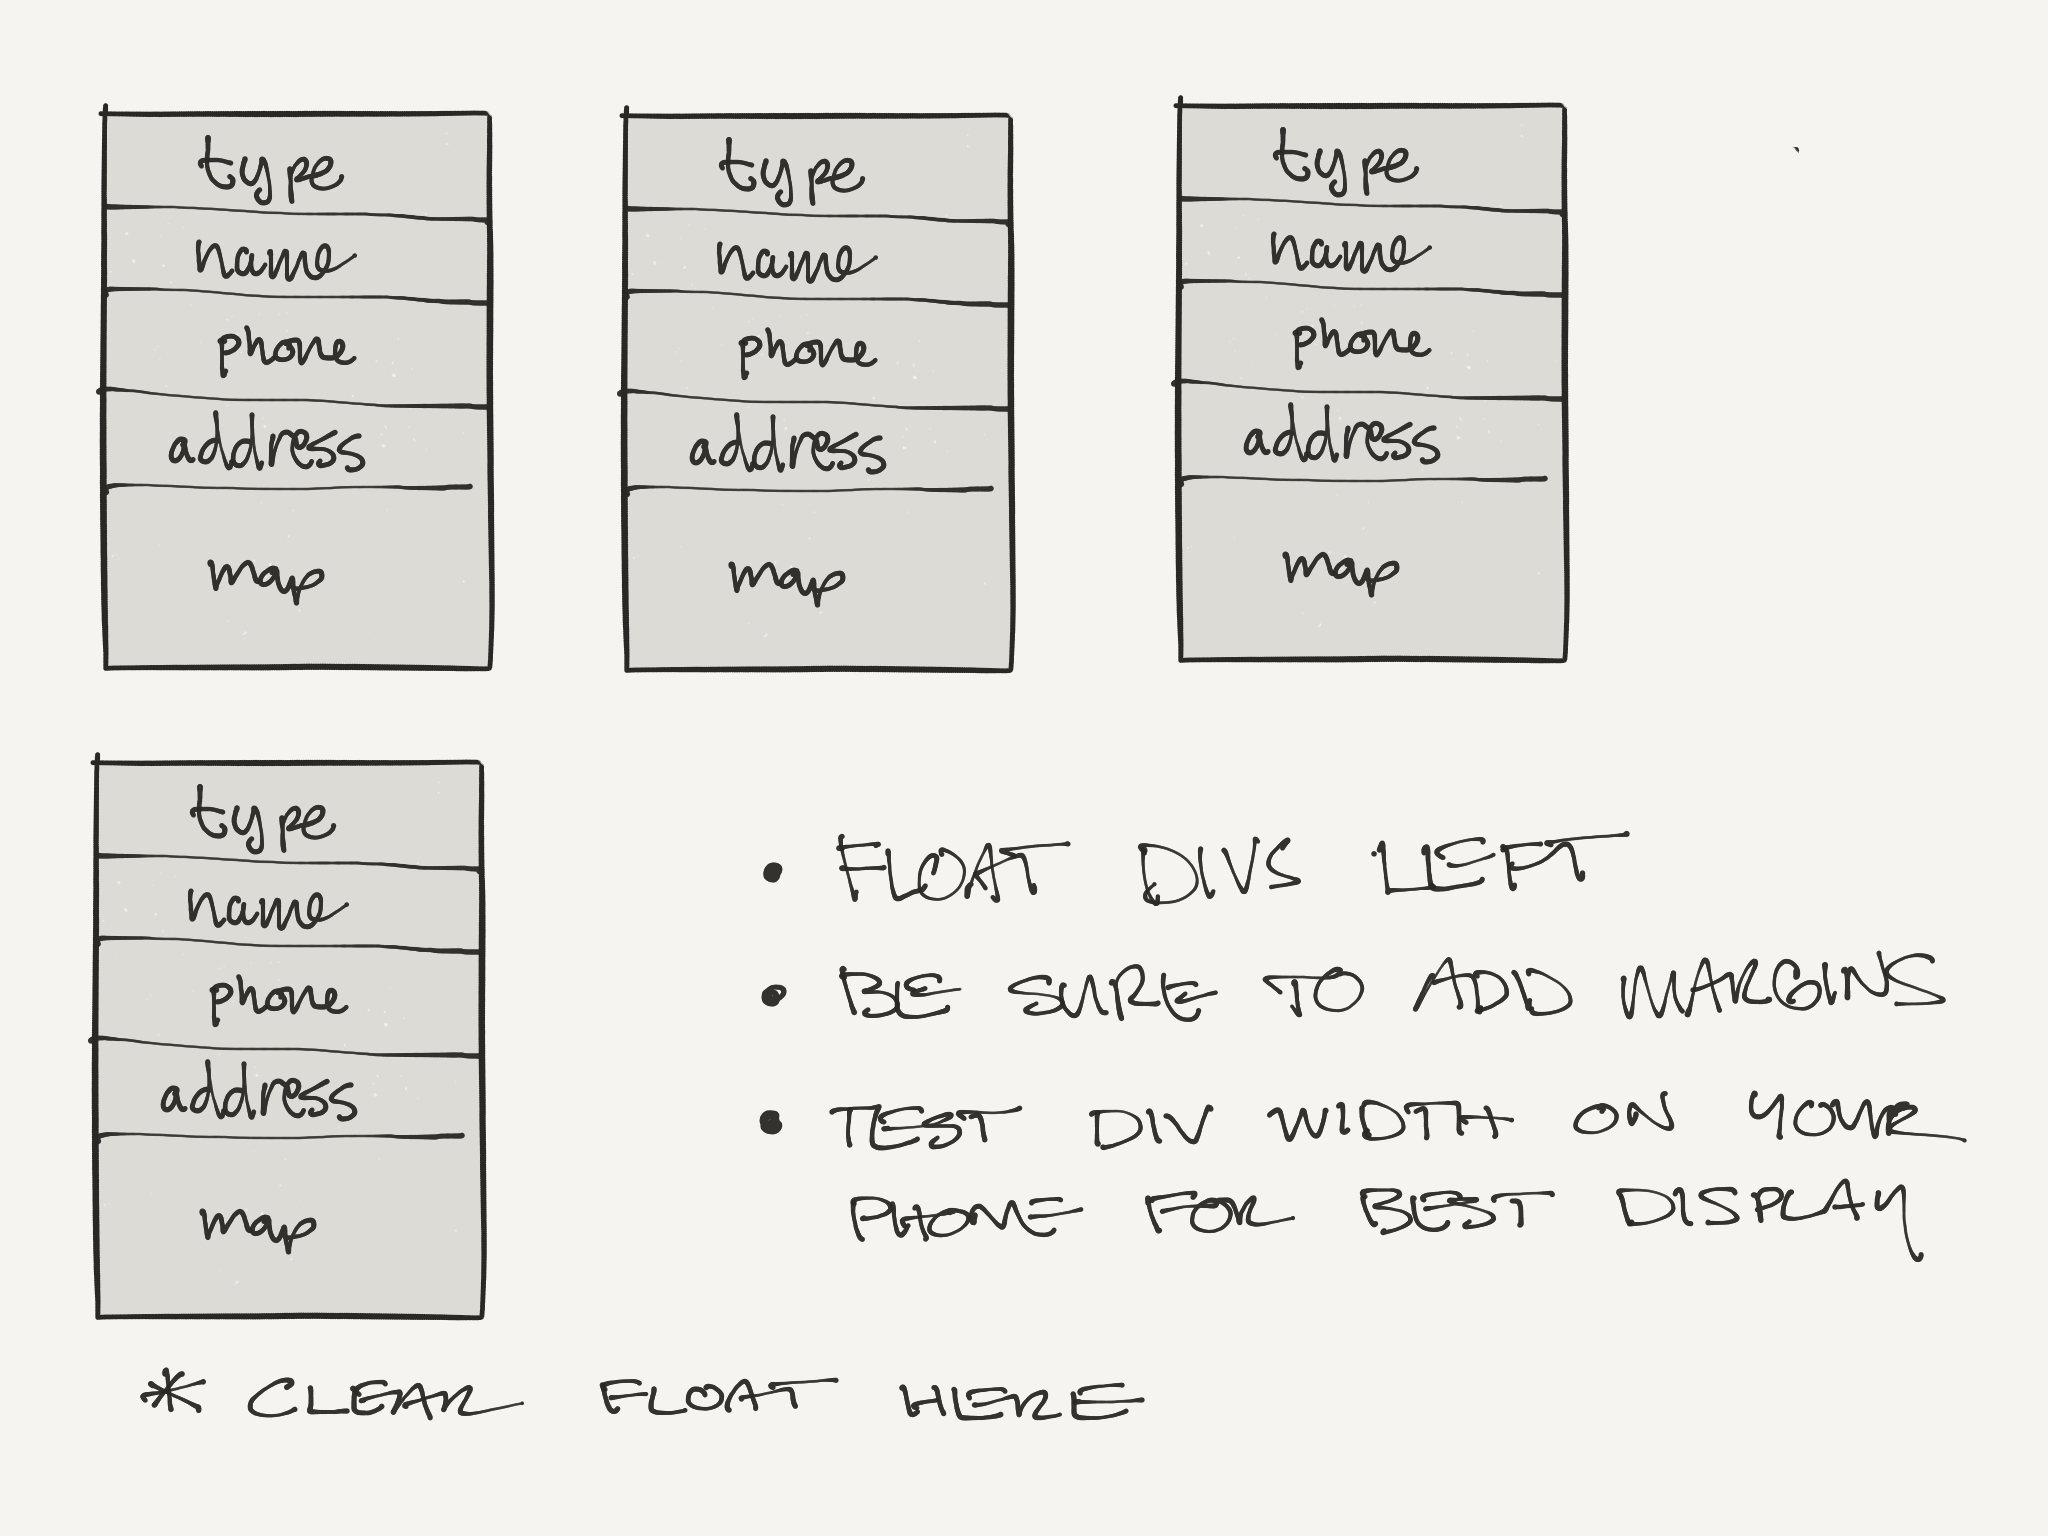 type
name
phone
address
map
type
name
phone
address
map
type
name
phone
address
map
type
name
phone
address
map
• FLOAT DIVS LEFT
• BE SURE TO ADD MARGINS
• TEST DIV WIDTH ON YOUR
PHONE FOR BEST DISPLAY
* CLEAR FLOAT HERE